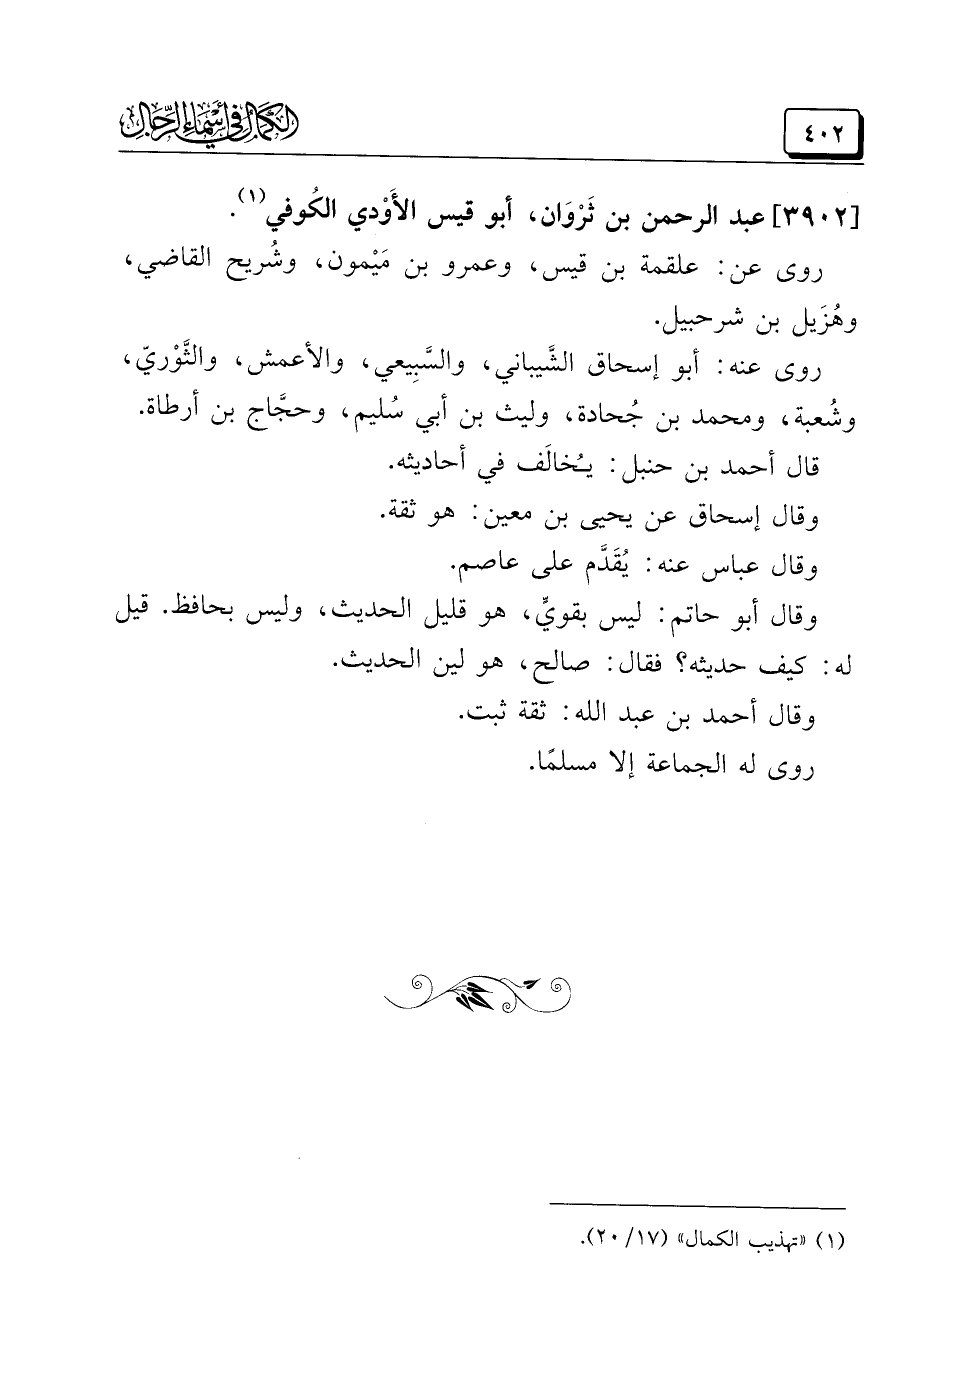 ٤٠٢
الكمال في أسماء الرجال
[٣٩٠٢] عبد الرحمن بن ثَرْوَان، أبو قيس الأَوْدي الكُوفي(١).
روى عن: علقمة بن قيس، وعمرو بن مَيْمون، وشُريح القاضي،
وهُزَيل بن شرحبيل.
روى عنه: أبو إسحاق الشَّيباني، والسَّبِيعي، والأعمش، والثَّوْريّ،
وشُعبة، ومحمد بن جُحادة، وليث بن أبي سُليم، وحجَّاج بن أرطاة.
قال أحمد بن حنبل: يُخالَف في أحاديثه.
وقال إسحاق عن يحيى بن معين: هو ثقة.
وقال عباس عنه: يُقَدَّم على عاصم.
وقال أبو حاتم: ليس بقويٍّ، هو قليل الحديث، وليس بحافظ. قيل
له: كيف حديثه؟ فقال: صالح، هو لين الحديث.
وقال أحمد بن عبد الله: ثقة ثبت.
روى له الجماعة إلا مسلمًا.
(١) «تهذيب الكمال» (١٧/ ٢٠).